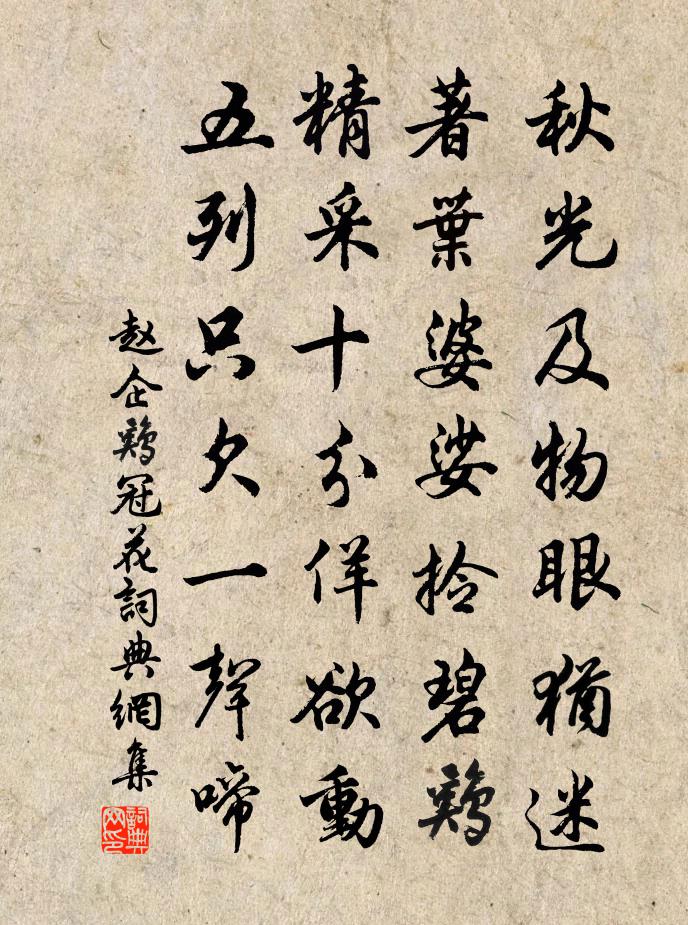 秋光及物眼猶迷
著葉婆娑拾碧鷄
精采十分佯欲動
五列只欠一聲啼
赵企鷄冠花詞典網集
詞典网印